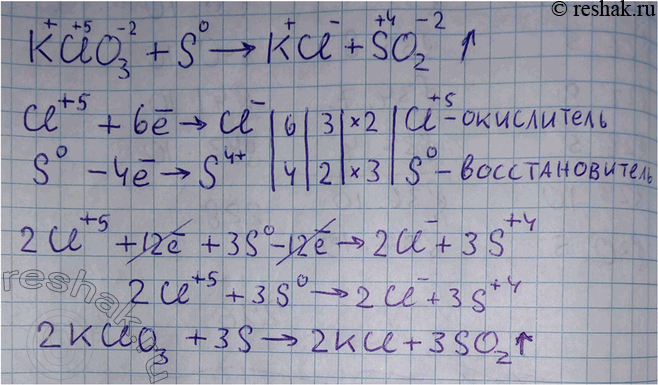 © reshak.ru
K⁺Cl⁺⁵O₃⁻² + S⁰ → K⁺Cl⁻ + S⁺⁴O₂⁻² ↑
Cl⁺⁵ + 6e̅ → Cl⁻ | 6 | 3 | ×2 | Cl⁺⁵ - окислитель
S⁰ - 4e̅ → S⁴⁺ | 4 | 2 | ×3 | S⁰ - восстановитель
2Cl⁺⁵ + 12e̅ + 3S⁰ - 12e̅ → 2Cl⁻ + 3S⁺⁴
reshak.ru
2Cl⁺⁵ + 3S⁰ → 2Cl⁻ + 3S⁺⁴
2KClO₃ + 3S → 2KCl + 3SO₂↑